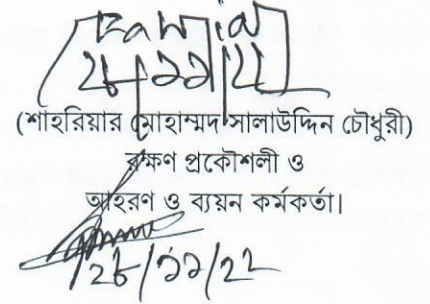 ২৮/১১/২২
(শাহরিয়ার মোহাম্মদ সালাউদ্দিন চৌধুরী)
রক্ষণ প্রকৌশলী ও
আহরণ ও ব্যয়ন কর্মকর্তা।
২৮/১১/২২